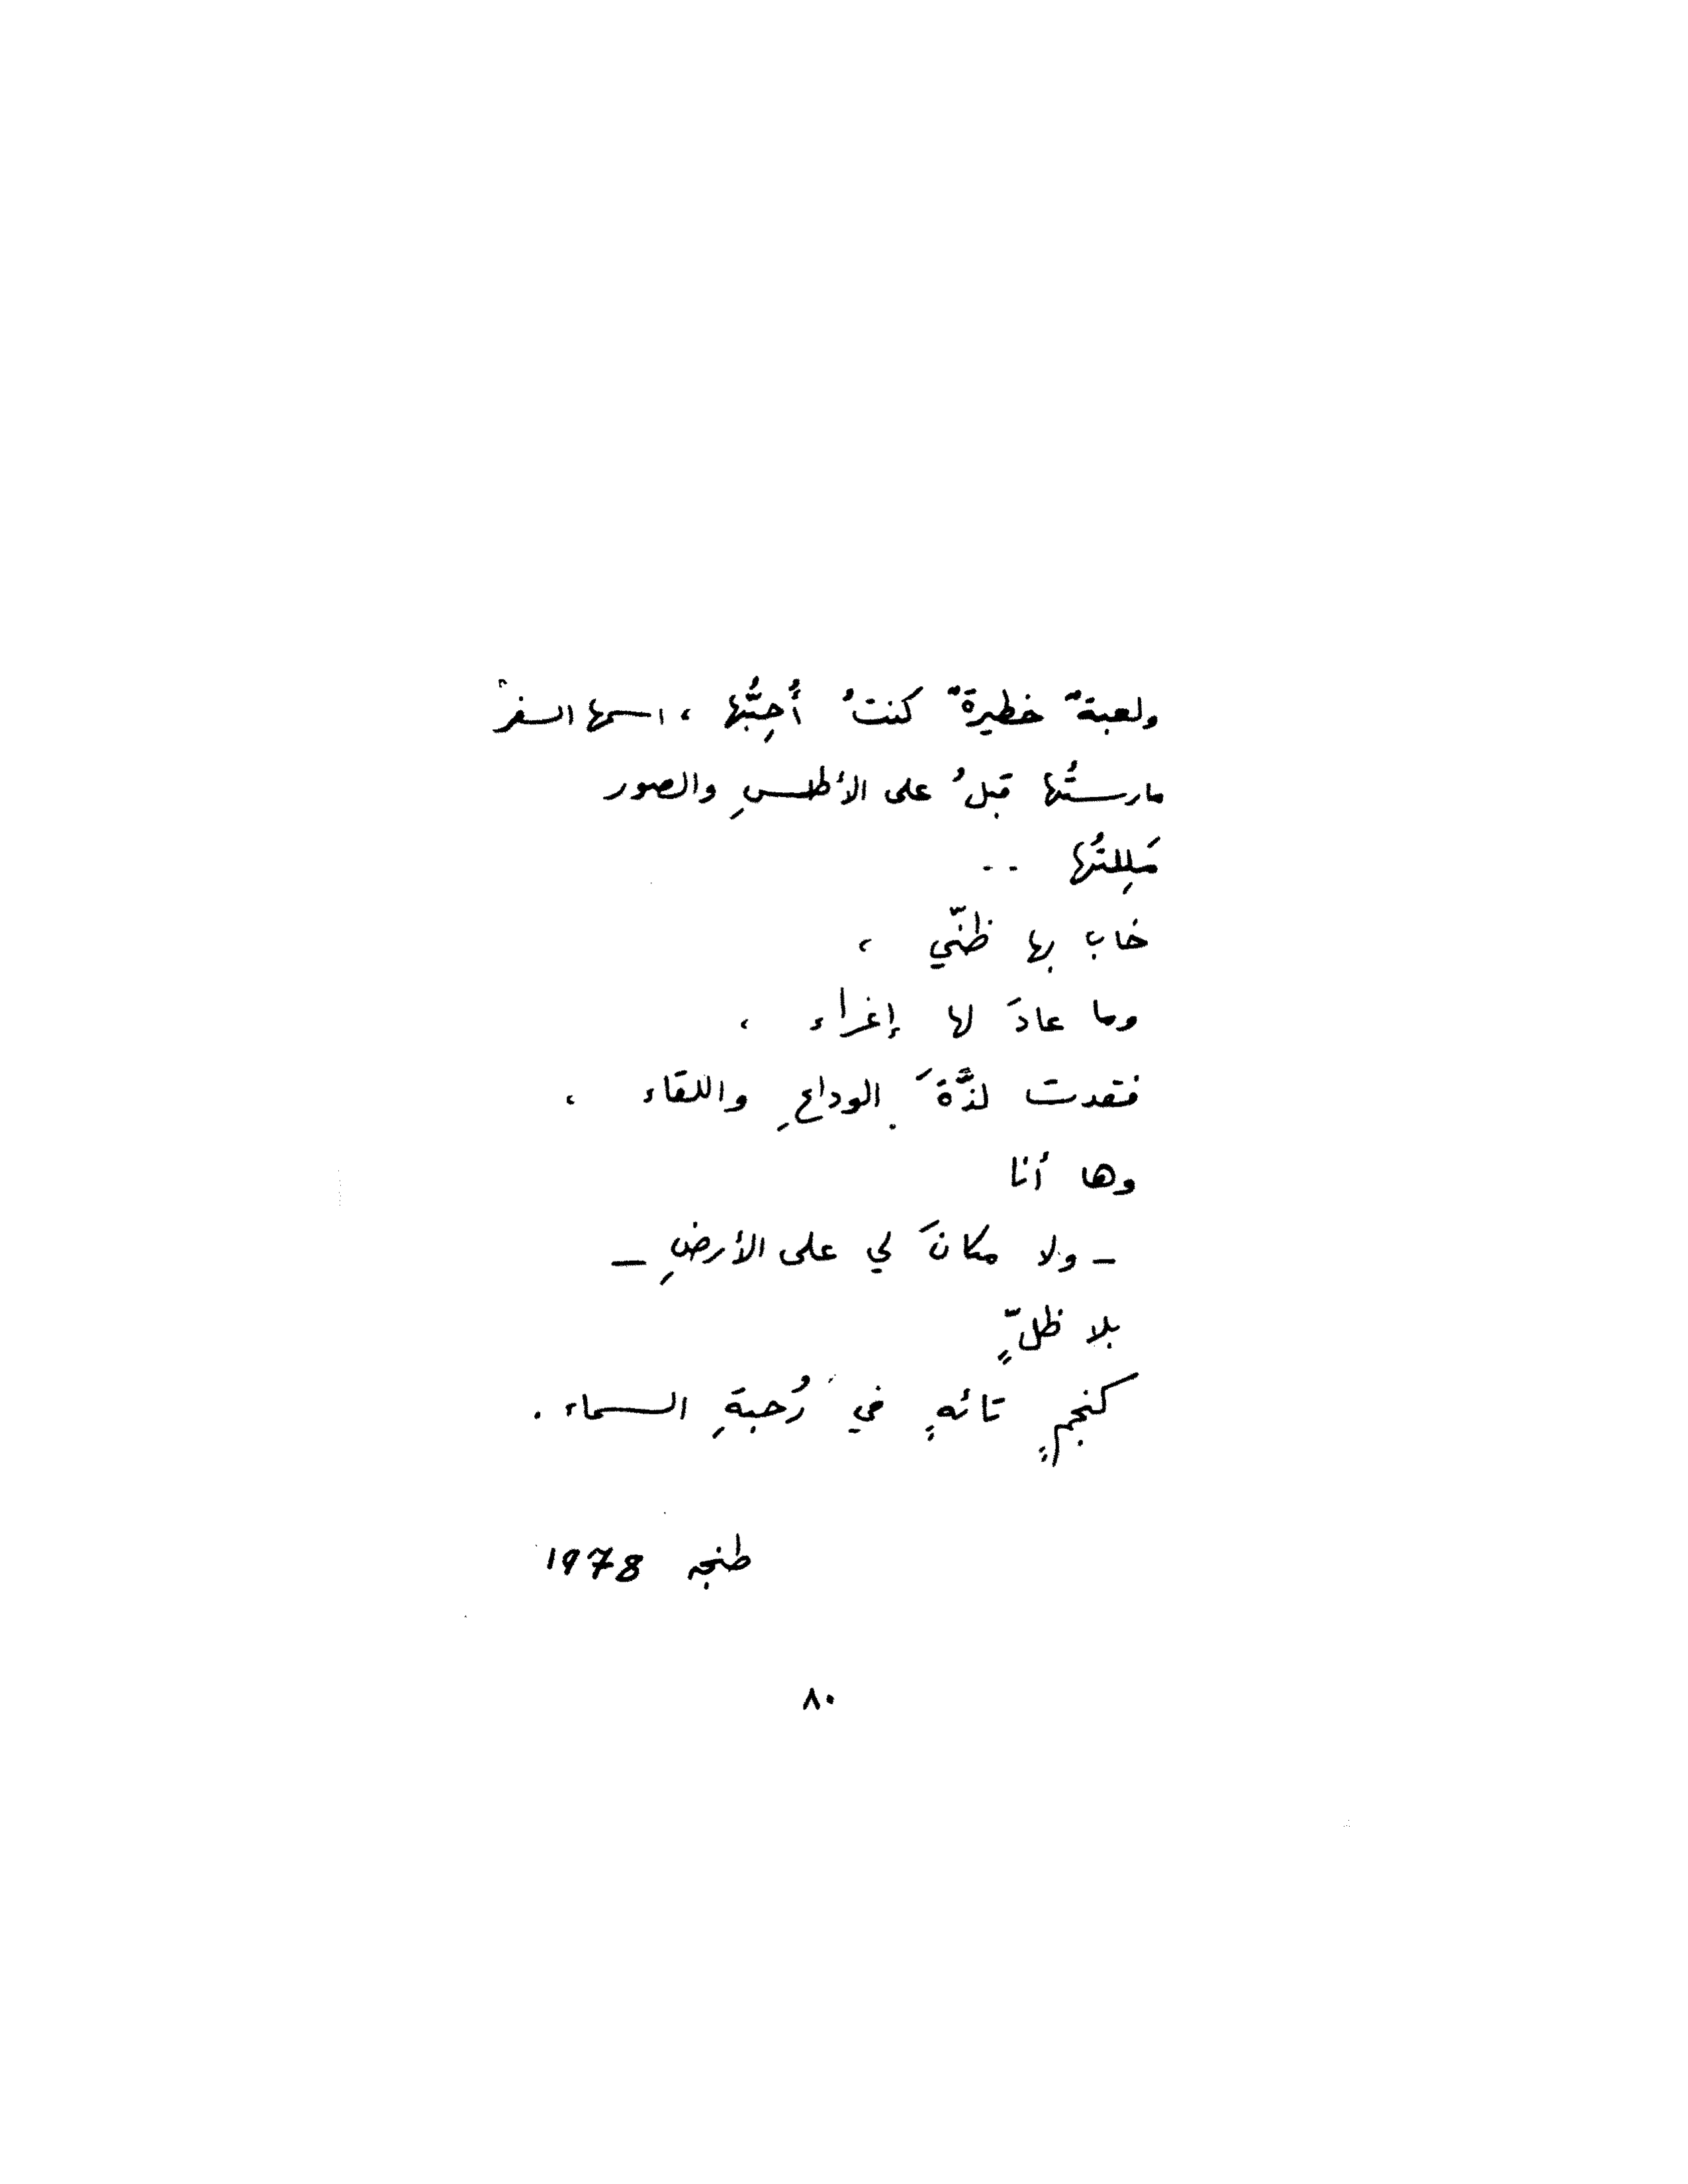 ولعبةٌ خطيرةٌ كنتُ أُحِبُّها ، اسمها السفرْ
مارستُها قبلُ على الأطلسِ والصور
مَلِلتُها . .
خاب بها ظنّي ،
وما عادَ لها إغراء ،
فقدت لذَّةَ الوداعِ واللقاء ،
وها أنا
ـ ولا مكانَ لي على الأرضِ ـ
بلا ظلٍّ
كنجمٍ تائهٍ في رُحبةِ السماء .
طنجه 1978
٨٠